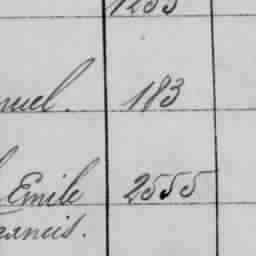 1253
nuel. 183
Emile 2555
rancis.